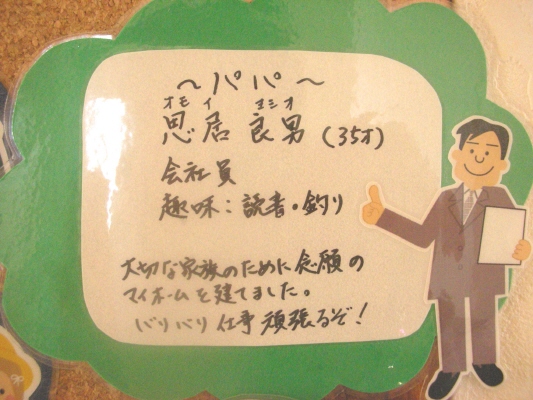 ～パパ～
オモイ ヨシオ
思居 良男 (35才)
会社員
趣味：読書・釣り
大切な家族のために念願の
マイホームを建てました。
バリバリ仕事頑張るぞ！